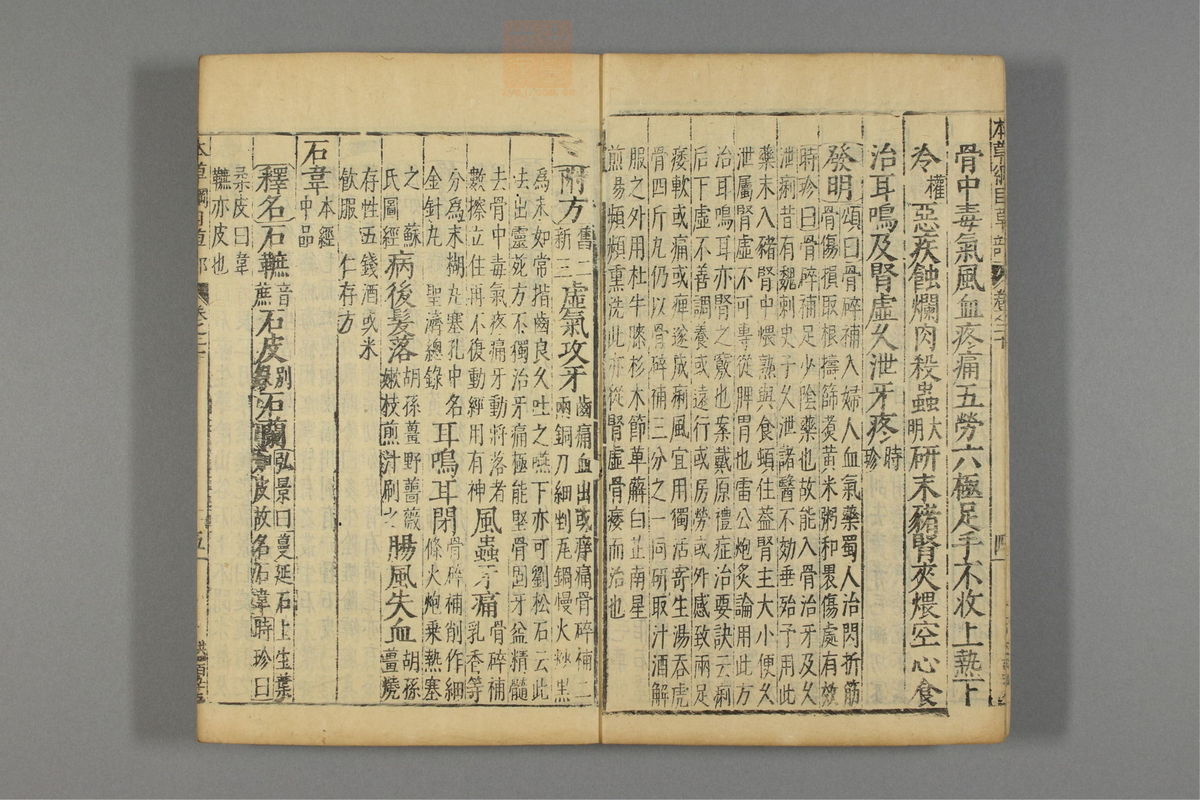 本草綱目草部 卷之二十 四
骨中毒氣風血疼痛五勞六極足手不收上熱下
冷權惡疾蝕爛肉殺蟲大明研末豬腎夾煨空心食
治耳鳴及腎虛久泄牙疼時珍
發明頌曰骨碎補入婦人血氣藥蜀人治閃折筋
骨傷損取根擣篩煑黃米粥和裹傷處有效
時珍曰骨碎補足少陰藥也故能入骨治牙及久
泄痢昔有魏刺史子久泄諸醫不効垂殆予用此
藥末入豬腎中煨熟與食頓住葢腎主大小便久
泄屬腎虛不可專從脾胃也雷公炮炙論用此方
治耳鳴耳亦腎之竅也案戴原禮症治要訣云痢
后下虛不善調養或遠行或房勞或外感致兩足
痿軟或痛或痺遂成痢風宜用獨活寄生湯吞虎
骨四斤丸仍以骨碎補三分之一同研取汁酒解
服之外用杜牛膝杉木節萆薢白芷南星
煎湯頻頻熏洗此亦從腎虛骨痿而治也
附方舊二新三虛氣攻牙齒痛血出或痒痛骨碎補二
兩銅刀細剉瓦鍋慢火炒黑
爲末如常揩齒良久吐之嚥下亦可劉松石云此
法出靈苑方不獨治牙痛極能堅骨固牙益精髓
去骨中毒氣疼痛牙動將落者
數擦立住再不復動經用有神風蟲牙痛骨碎補
乳香等
分爲末糊丸塞孔中名
金針丸聖濟總錄耳鳴耳閉骨碎補削作細
條火炮乗熱塞
之蘇
氏圖經病後髮落胡孫薑野薔薇
嫩枝煎汁刷之腸風失血胡孫
薑燒
存性五錢酒或米
飲服仁存方
石韋本經
中品
釋名石䩾音蔗石皮別錄石蘭弘景曰蔓延石上生葉
如皮故名石韋時珍曰
柔皮曰韋
䩾亦皮也
本草綱目草部 卷之二十 五